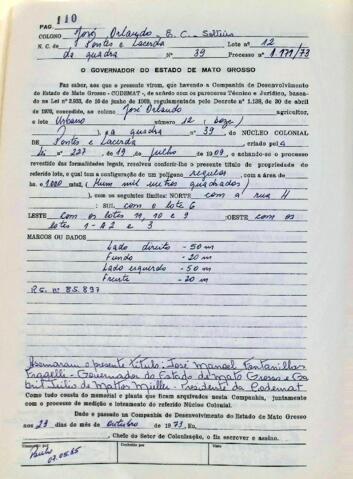 PAG. 110
COLONO José Orlando - E. C. - Solteiro
N. C. de Pontes e Lacerda Lote nº 12
da quadra Nº 39 Processo nº 1.171/73
O GOVERNADOR DO ESTADO DE MATO GROSSO
Faz saber, aos que o presente virem, que havendo a Companhia de Desenvolvimento
do Estado de Mato Grosso - CODEMAT -, de acôrdo com os pareceres Técnico e Jurídico, basea-
do na Lei nº 2.933, de 16 de junho de 1969, regulamentada pelo Decreto nº 1.138, de 30 de abril
de 1970, concedido, ao colono José Orlando agricultor,
o lote Urbano número 12 (doze)
), na quadra nº 39 do NÚCLEO COLONIAL
DE Pontes e Lacerda criado pela
Lei nº 227, de 19 de julho de 1909, e achando-se o processo
revestido das formalidades legais, resolveu conferir-lhe o presente título de propriedade do
referido lote, o qual tem a configuração de um polígono regular com a área de
ha. e 1.000 mts2. (Hum mil metros quadrados)
), com os seguintes limites: NORTE com a rua H
: SUL com o lote 6
LESTE com os lotes 11, 10 e 9 :OESTE com os
lotes 1-A 2 e 3
MARCOS OU DADOS
Lado direito - 50 m
Fundo - 20 m
Lado esquerdo - 50 m
Frente - 20 m
R.S. nº 85.897
Assinaram o presente título: José Manoel Fontanillas
Fragelli - Governador do Estado de Mato Grosso e Ga-
briel Júlio de Mattos Müller - Presidente da Codemat
Como tudo consta do memorial e planta que ficam arquivados nesta Companhia, juntamente
com o processo de medição e loteamento do referido Núcleo Colonial.
Dado e passado na Companhia de Desenvolvimento do Estado de Mato Grosso
aos 29 dias do mês de outubro de 1973. Eu,
, Chefe do Setor de Colonização, o fiz escrever e assino.
07.05.85